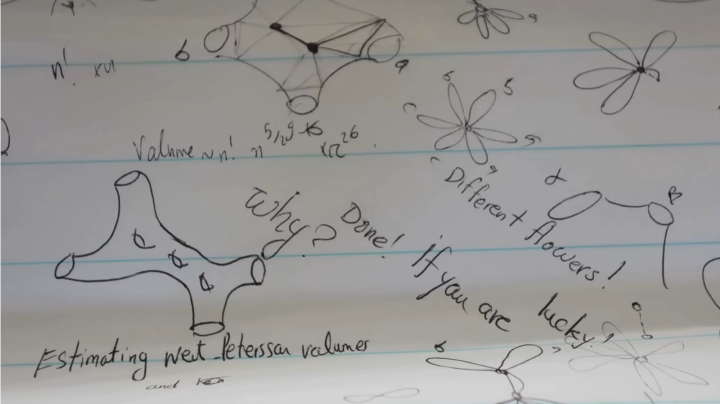 b
a
n!
Volume ~ n!
b
5
a
"Different flowers!
α
B
Why?
Done!
If you are lucky,
Estimating Weil-Peterssan valumes
and
b